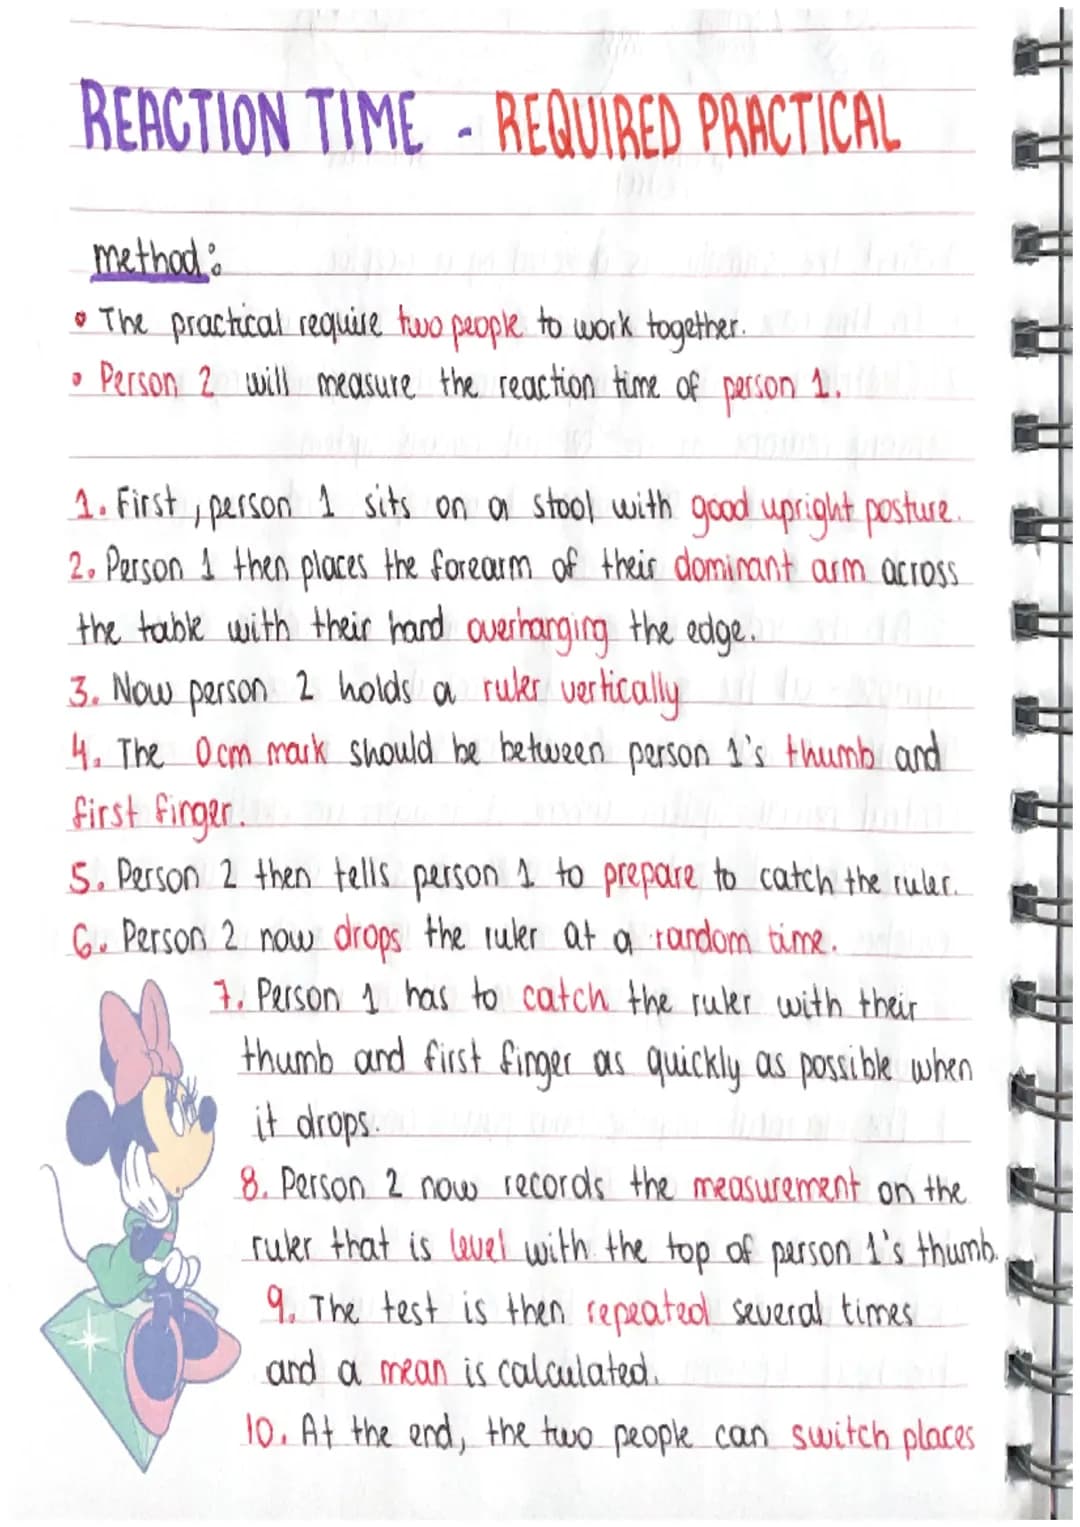 REACTION TIME - REQUIRED PRACTICAL
method:
• The practical require two people to work together.
• Person 2 will measure the reaction time of person 1.
1. First, person 1 sits on a stool with good upright posture.
2. Person 1 then places the forearm of their dominant arm across
the table with their hand overhanging the edge.
3. Now person 2 holds a ruler vertically
4. The 0cm mark should be between person 1's thumb and
first finger.
5. Person 2 then tells person 1 to prepare to catch the ruler.
6. Person 2 now drops the ruler at a random time.
7. Person 1 has to catch the ruler with their
thumb and first finger as quickly as possible when
it drops.
8. Person 2 now records the measurement on the
ruler that is level with the top of person 1's thumb.
9. The test is then repeated several times
and a mean is calculated.
10. At the end, the two people can switch places